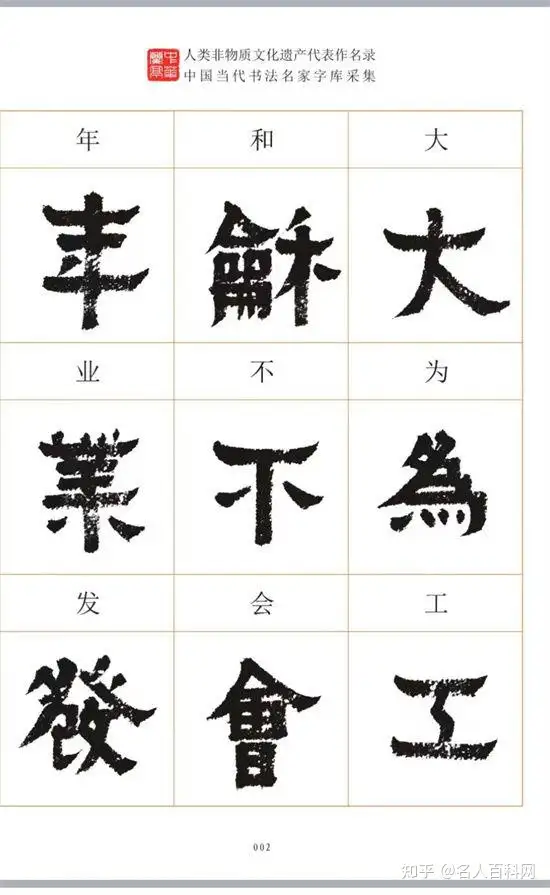 人类非物质文化遗产代表作名录
中国当代书法名家字库采集
年 和 大
年 龢 大
业 不 为
業 不 為
发 会 工
發 會 工
002
知乎 @名人百科网